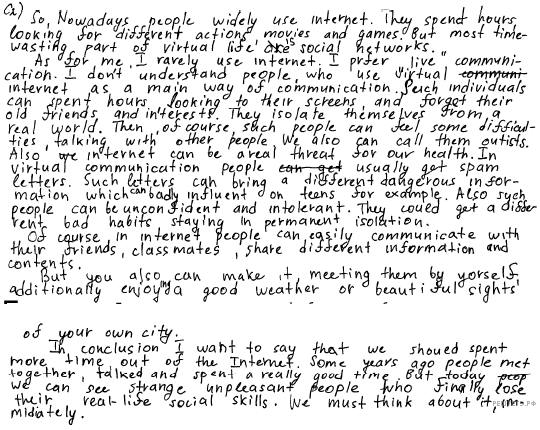 a)
So, Nowadays people widely use internet. They spend hours,
looking for different actions, movies and games. But most time-
wasting part of virtual life are social networks.
As for me, I rarely use internet. I prfer "live" communi-
cation. I don't understand people, who use "virtual communi
internet as a main way of communication. Such individuals
can spent hours, looking to their screens, and forget their
old friends and interests. They isolate themselves from a
real world. Then, of course, such people can feel some difficul-
ties, talking with other people. We also can call them outists.
Also we internet can be a real threat for our health. In
virtual communication people can get usually get spam
letters. Such letters can bring a different dangerous infor-
mation which can badly influent on teens for example. Also such
people can be unconfident and intolerant. They could get a diffe-
rent bad habits staying in permanent isolation.
Of course in internet people can easily communicate with
their friends, classmates, share different information and
contents.
But you also can make it, meeting them by yorself,
additionally enjoying a good weather or beautiful sights
of your own city.
In conclusion I want to say that we shoued spent
more time out of the Internet. Some years ago people met
together, talked and spent a really good time. But today peop
we can see strange unpleasant people who finally lose
their real-life social skills. We must think about it, im-
midiately.